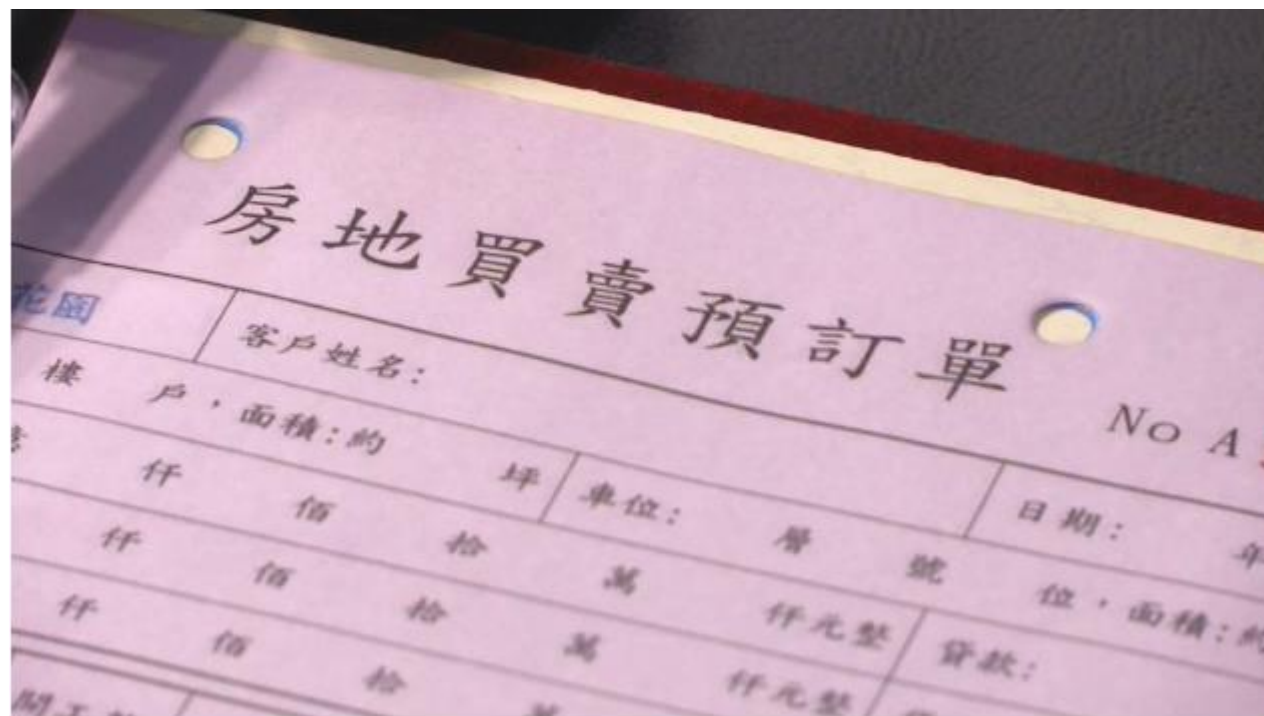 房地買賣預訂單
No A
花園
客戶姓名:
日期: 年
樓 戶，面積:約 坪
車位: 層 號 位，面積:約
仟 佰 拾 萬 仟元整
貸款:
仟 佰 拾 萬 仟元整
仟 佰 拾 萬